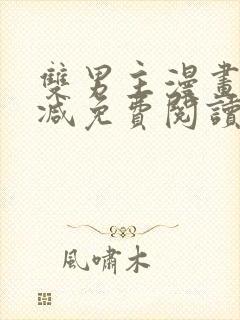 雙男主漫畫
减免費閱讀
風嘯木